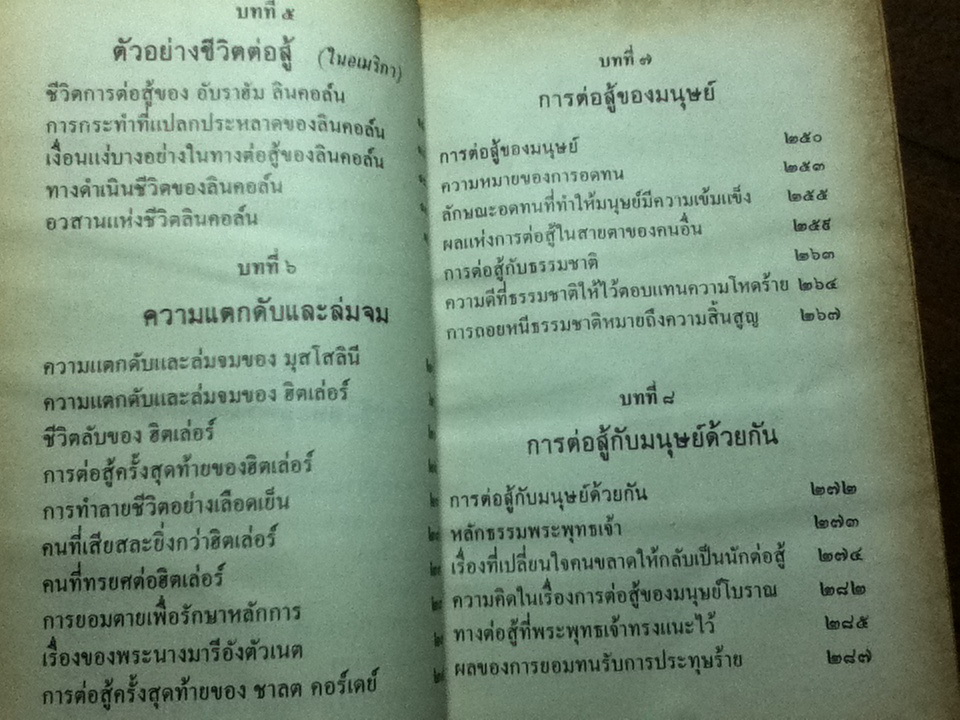 บทที่ ๕
ตัวอย่างชีวิตต่อสู้ (ในอเมริกา)
ชีวิตการต่อสู้ของ อับราฮัม ลินคอล์น
การกระทำที่แปลกประหลาดของลินคอล์น
เงื่อนแง่บางอย่างในทางต่อสู้ของลินคอล์น
ทางดำเนินชีวิตของลินคอล์น
อวสานแห่งชีวิตลินคอล์น
บทที่ ๖
ความแตกดับและล่มจม
ความแตกดับและล่มจมของ มุสโสลินี
ความแตกดับและล่มจมของ ฮิตเล่อร์
ชีวิตลับของ ฮิตเล่อร์
การต่อสู้ครั้งสุดท้ายของฮิตเล่อร์
การทำลายชีวิตอย่างเลือดเย็น
คนที่เสียสละยิ่งกว่าฮิตเล่อร์
คนที่ทรยศต่อฮิตเล่อร์
การยอมตายเพื่อรักษาหลักการ
เรื่องของพระนางมารีอังตัวเนต
การต่อสู้ครั้งสุดท้ายของ ชาลต คอร์เดย์
บทที่ ๗
การต่อสู้ของมนุษย์
การต่อสู้ของมนุษย์ ๒๕๐
ความหมายของการอดทน ๒๕๓
ลักษณะอดทนที่ทำให้มนุษย์มีความเข้มแข็ง ๒๕๕
ผลแห่งการต่อสู้ในสายตาของคนอื่น ๒๕๙
การต่อสู้กับธรรมชาติ ๒๖๓
ความดีที่ธรรมชาติให้ไว้ตอบแทนความโหดร้าย ๒๖๔
การถอยหนีธรรมชาติหมายถึงความสิ้นสูญ ๒๖๗
บทที่ ๘
การต่อสู้กับมนุษย์ด้วยกัน
การต่อสู้กับมนุษย์ด้วยกัน ๒๗๒
หลักธรรมพระพุทธเจ้า ๒๗๓
เรื่องที่เปลี่ยนใจคนขลาดให้กลับเป็นนักต่อสู้ ๒๗๔
ความคิดในเรื่องการต่อสู้ของมนุษย์โบราณ ๒๘๒
ทางต่อสู้ที่พระพุทธเจ้าทรงแนะไว้ ๒๘๕
ผลของการยอมทนรับการประทุษร้าย ๒๘๗